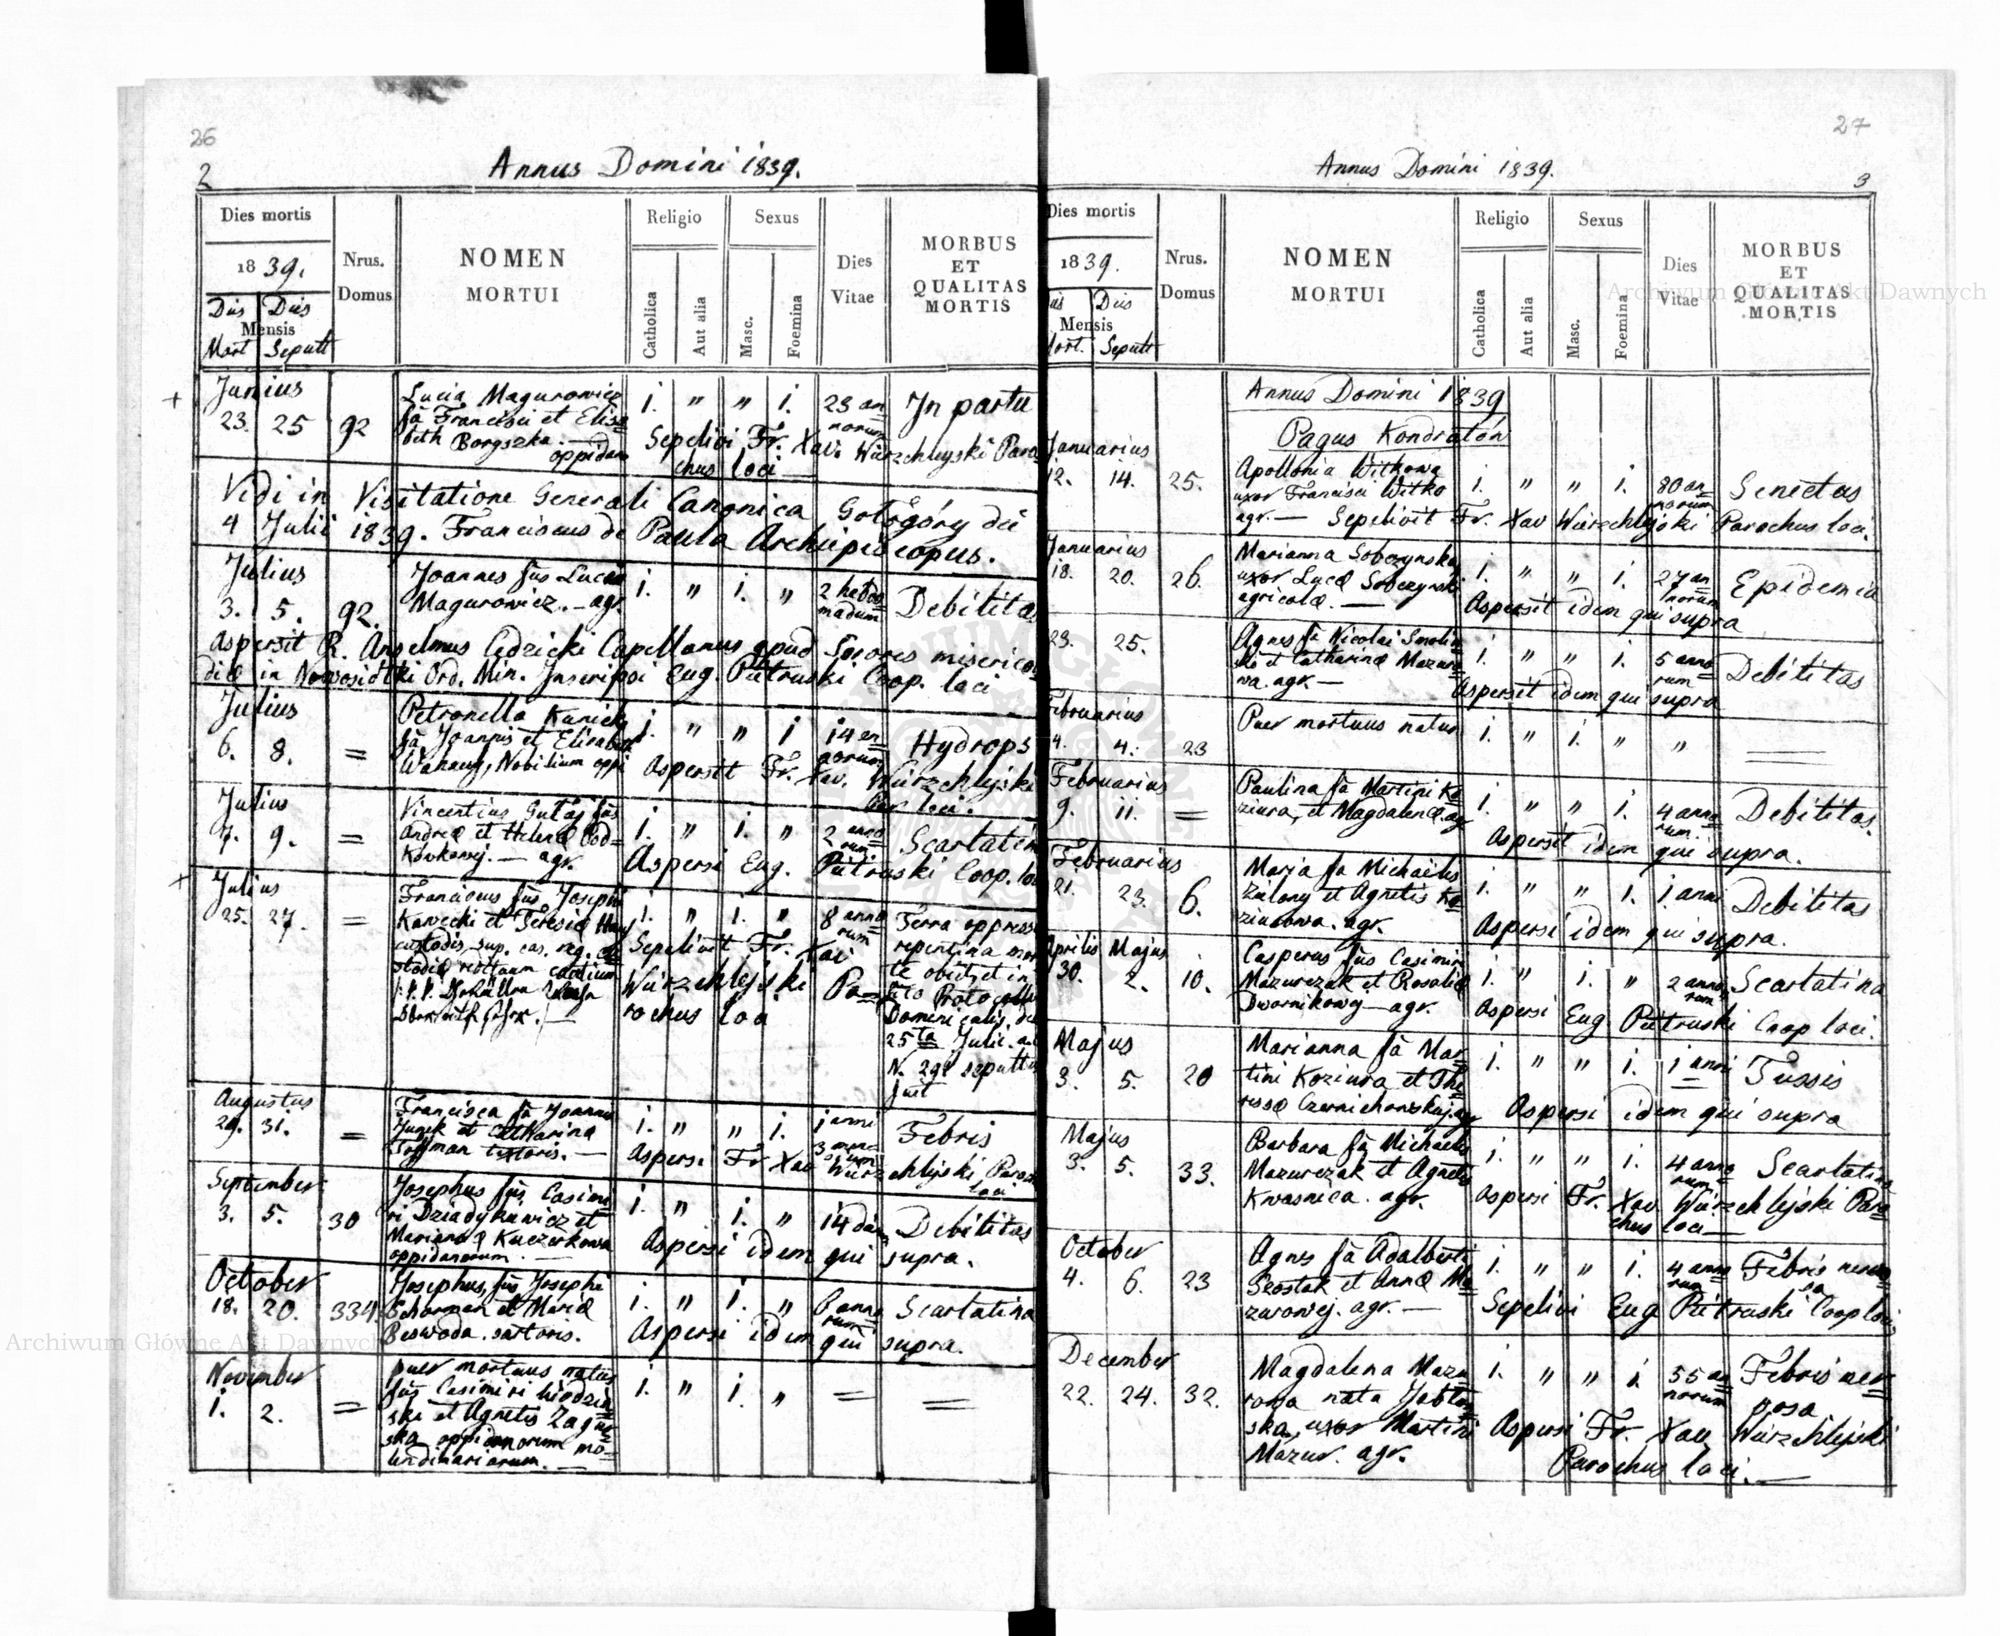 26
2
Annus Domini 1839.
Dies mortis
Nrus.
Domus
NOMEN
MORTUI
Religio
Sexus
Dies
Vitae
MORBUS
ET
QUALITAS
MORTIS
1839.
Catholica
Aut alia
Masc.
Foemina
Dies Dies
Mensis
Mort Sepult
Junius
23. 25 92
Lucia Magurowicz
fa Francisci et Elisa
beth Borgszka. — oppidan
1. " " 1. 23 an
norum In partu
Sepelivi Fr. Xav. Würzchlejski Paro
chus loci
Vidi in Visitatione Generali Canonica Gołogóry die
4 Julii 1839. Franciscus de Paula Archiepiscopus.
Julius
3. 5. 92.
Joannes fus Lucia
Magurowicz. — agr.
1. " 1. " 2 hebdo
madum Debilitas
Aspersit R. Anselmus Cędzicki Capellanus apud Sorores misericor
diae in Nowosiółki Ord. Min. Inscripsi Eug. Pietruski Coop. loci
Julius
6. 8. =
Petronella Kanicki
fa Joannis et Elisabeth
Nobilium oppi
1. " " 1 14 an
norum Hydrops
Aspersit Fr. Xav. Würzchlejski
Par. loci.
Julius
7. 9. =
Vincentius Gutaj fus
Andreae et Helenae Pod=
kowkowej. — agr.
1. " 1. " 2 anno
rum Scarlatin
Aspersi Eug. Pietruski Coop. loci
Julius
25. 27. =
Franciscus fus Josephi
Kawecki et Teresiae
custodis sup. cas. reg.
1. " 1. " 8 anno
rum
Sepelivit Fr. Xav
Würzchlejski Pa=
rochus loci
Terra oppress
repentina mor
te obiit, et in
Protocollu
Dominicalis. de
25ta Julii a
N. 298 sepultus
fuit
Augustus
29. 31. =
Francisca fa Joannis
Junek et Catharina
Toffman textoris. —
1. " " 1. 1 anni
3 men
sium Febris
Aspersi Fr Xav Würzchlejski Paroch
loci.
September
3. 5. 30
Josephus fus Casimi
ri Dziadykiewicz et
Marianae Kuczerkowa
oppidanorum. —
1. " 1. " 14 dier Debilitas
Aspersi idem qui supra.
October
18. 20. 334.
Josephus, fus Josephi
et Mariae
Beswoda. sartoris.
1. " 1. " 8 anno
rum Scarlatina
Aspersi idem qui supra.
November
1. 2. =
puer mortuus natus
fus Casimiri
ski et Agnetis Zagur
ska oppidanorum mo=
lendinariorum. —
1. " 1. " = =
27
Annus Domini 1839.
3
Dies mortis
Nrus.
Domus
NOMEN
MORTUI
Religio
Sexus
Dies
Vitae
MORBUS
ET
QUALITAS
MORTIS
1839.
Catholica
Aut alia
Masc.
Foemina
Dies
Mensis
Mort. Sepult
Annus Domini 1839
Pagus Kondratów
Januarius
12. 14. 25.
Apollonia Witkowa
uxor Francisci Witko
agr. — Sepelivit Fr. Xav Würzchlejski Parochus loci.
1. " " 1. 80 an
norum Senectus
Januarius
18. 20. 26.
Marianna Sobczynska
uxor Lucae Sobczynski
agricolae. —
1. " " 1. 27 an
norum Epidemia
Aspersit idem qui supra
23. 25.
Agnes fa Nicolai Smolin
ski et Catharinae Mazuro
wa. agr. —
1. " " 1. 5 anno
rum Debilitas
Aspersit idem qui supra
Februarius
4. 4. 23
Puer mortuus natus
1. " 1. " "
Februarius
9. 11. =
Paulina fa Martini Ko
ziura, et Magdalenae. agr
1. " " 1. 4 anno
rum. Debilitas.
Aspersit idem qui supra.
Februarius
21. 23. 6.
Marja fa Michaelis
Zielony et Agnetis Ko
ziurowa. agr.
1. " " 1. 1 anni Debilitas
Aspersi idem qui supra.
Aprilis Majus
30. 2. 10.
Casperus fus Casimiri
Mazurczak et Rosaliae
Dwornikowej — agr.
1. " 1. " 2 anno
rum Scarlatina
Aspersi Eug Pietruski Coop loci.
Majus
3. 5. 20
Marianna fa Mar
tini Koziura et The
resae Czernichowskiej. agr
1. " " 1. 1 anni Tussis
Aspersi idem qui supra
Majus
3. 5. 33.
Barbara fa Michaelis
Mazurczak et Agnetis
Kwasnica. agr.
1. " " 1. 4 anno
rum Scarlatina
Aspersi Fr. Xav Würzchlejski Paro
chus loci —
October
4. 6. 23
Agnes fa Adalberti
Szostak et Annae Ma
zurowej. agr. —
1. " " 1. 4 anno
rum Febris nervo
sa
Sepelivi Eug Pietruski Coop loci
December
22. 24. 32.
Magdalena Mazu
rowa nata Jablon
ska, uxor Martini
Mazur. agr.
1. " " 1 55 an
norum Febris ner
vosa
Aspersi Fr. Xav Würzchlejski
Parochus loci. —
Archiwum Główne Akt Dawnych
Archiwum Główne Akt Dawnych